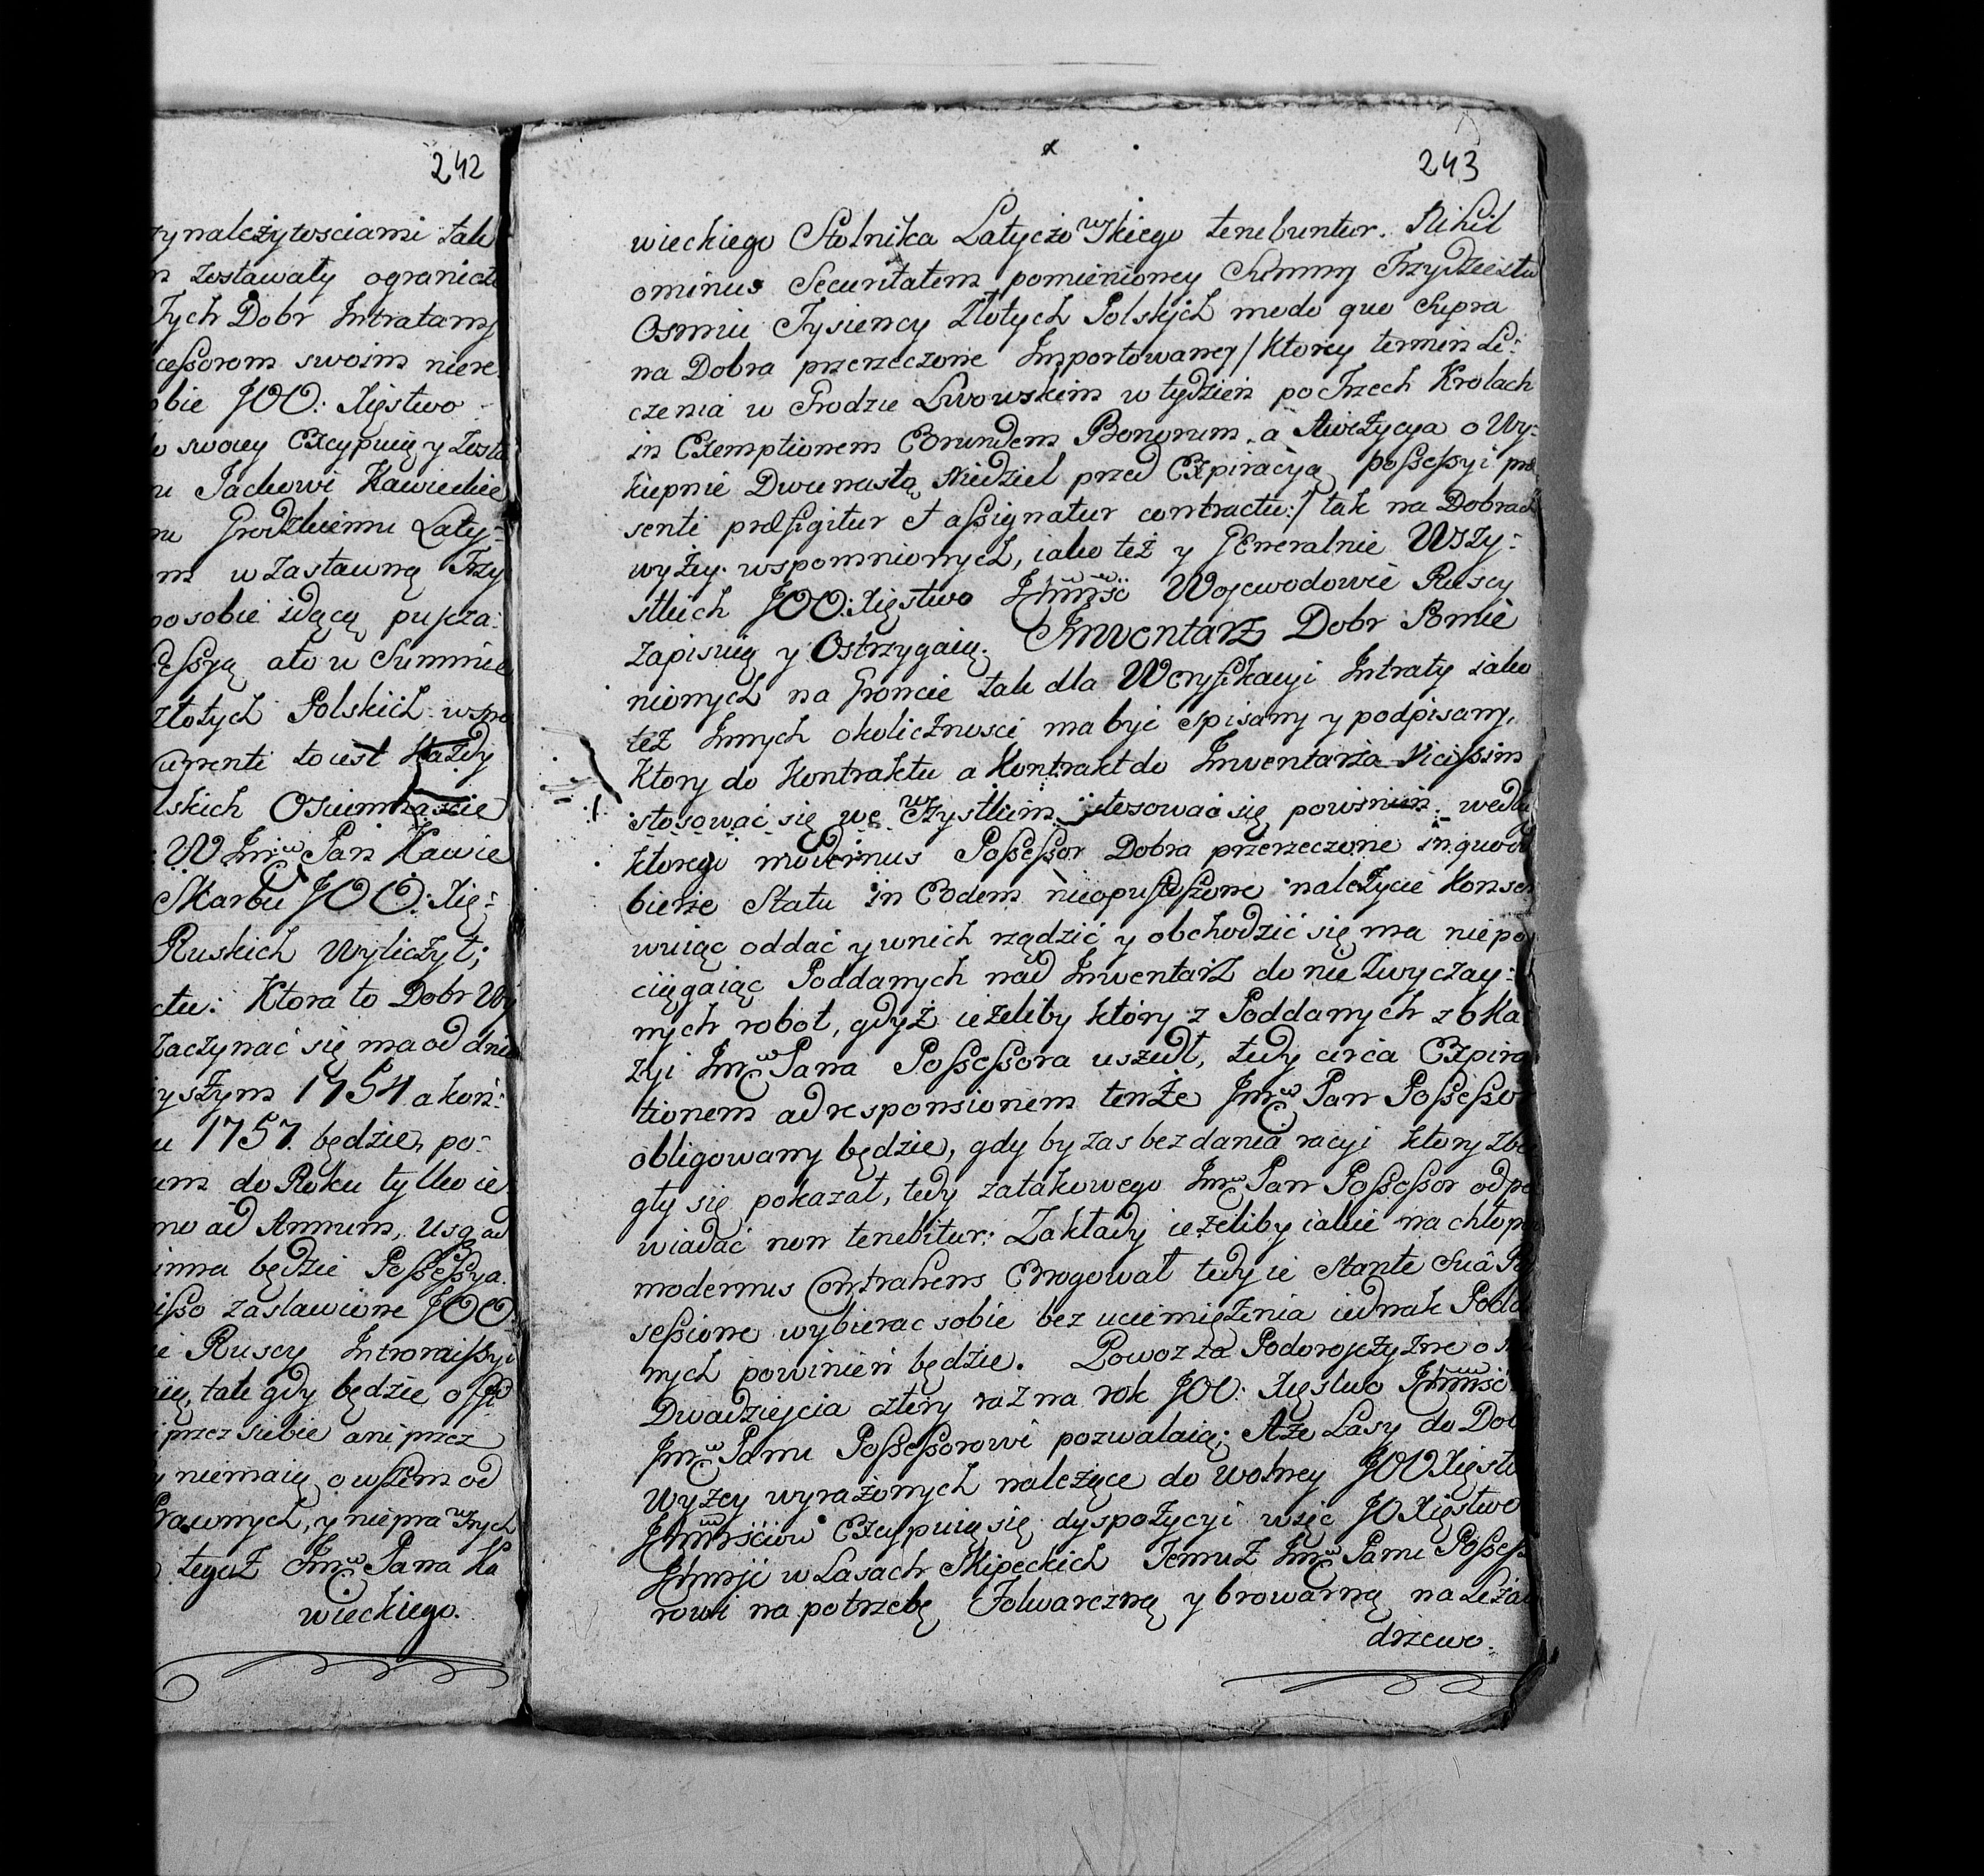 242
zynależytosciami tak
zostawały ogranicze
Tych Dobr Intratamy
cessorom swoim niere
obie JOO: Xięstwo
swoiey Excypuią y zosta
Jackowi Kawieckie
Grodzkiemu Laty=
w zastawną Trzy
po sobie idącą puszcza:
sessyą ato w Summie
złotych Polskich wspo
Currenti toiest każdy
lskich Osiemnascie
W Jmć Pan Kawie
Skarbu JOO: Xię=
Ruskich wyliczył;
ctu: Ktora to Dobr Wy
zaczynać się ma od dnia
yszłym 1754 a koń:
u 1757. będzie, po=
do Roku tylko ie
ad Annum, Usq ad
inna będzie Possessya.
isso zastawione JOO
Ruscy Intromissyi
tak gdy będzie
przez siebie ani przez
niemaią, owszem od
Prawnych, y niepra wnych
teguż Jmć Pana Ka
wieckiego.
243
wieckiego Stolnika Latyczo wskiego tenebuntur. Nihil
ominus Securitatem pomienioney Summy Trzydziestu
Osmiu Tysiency Złotych Polskich modo quo Supra
na Dobra przerzeczone Importowaney /Ktorey termin Li:
czenia w Grodzie Lwowskim w tydzień po Trzech Krolach
in Exemptionem Eorundem Bonorum, a Awizycya o Wy=
kupnie Dwunastą Niedziel przed Expiracyą possessyi præ
senti præfigitur et assignatur contractu:/ tak na Dobrach
wyżey wspomnionych, iako też y Generalnie Wszy=
stkich JOO: Xięstwo Ichmść Wojewodowie Ruscy
zapisuią y Ostrzygaią. Inwentarz Dobr Pomie
nionych na Groncie tak dla Weryfikacyi Intraty iako
też Innych okoliczności ma być spisany y podpisany,
Ktory do Kontraktu a Kontrakt do Inwentarza Vicissim
stosować się we wszystkim stosować się powinien wedlu
ktorego modernus Possessor Dobra przerzeczone in quo od
bierze Statu in Eodem nieopustoszone należycie Konser
wuiąc oddać y wnich rządzić y obchodzić się ma niepo
ciągaiąc Poddanych nad Inwentarz do nie zwyczay=
nych robot, gdyż ieżeliby który z Poddanych z oka
zyi Jmć Pana Possessora uszedł, tedy circa Expira
tionem ad responsionem tenże Jmć Pan Possessor
obligowany będzie, gdy by zas bez dania racyi ktory zbie
gły się pokazał, tedy za takowego Jmć Pan Possessor odpo
wiadać non tenebitur: Zakłady ieżeliby iakie na chłopow
modernus Contrahens Erogował tedy ie Stante Suâ Po
sessione wybierac sobie bez uciemiężenia iednak Podda
nych powinień będzie. Powoz za Podorożyzne o
Dwadziescia cztery raz na rok JOO: Xięstwo Ichmść
Jmć Panu Possessorowi pozwalaią; Aże Lasy do Dobr
Wyżey wyrażonych należące do wolney JOO Xięstw
Ichmściow Excypuią się dyspozycyi więc JO Xięstwo
Ichmść w Lasach Skipeckich Temuż Jmć Panu Possess
rowi na potrzebę Folwarczną y browarną należą
drzewo.